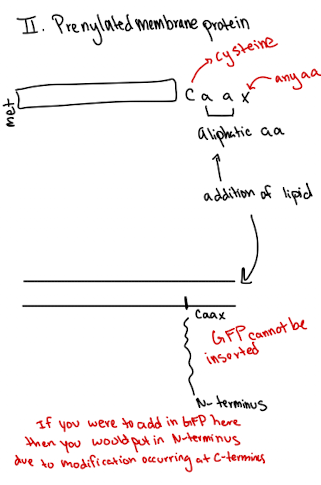 II. Prenylated membrane protein
cysteine
any aa
met
C a a x
aliphatic aa
addition of lipid
Caax
GFP cannot be
insorted
N-terminus
If you were to add in GFP here
then you would put in N-terminus
due to modification occurring at C-terminus